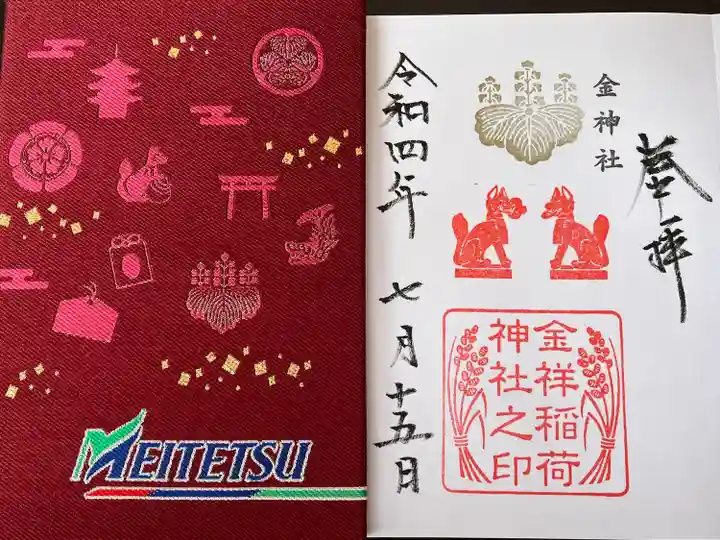 MEITETSU
奉拝
金神社
金祥稲荷
神社之印
令和四年 七月十五日